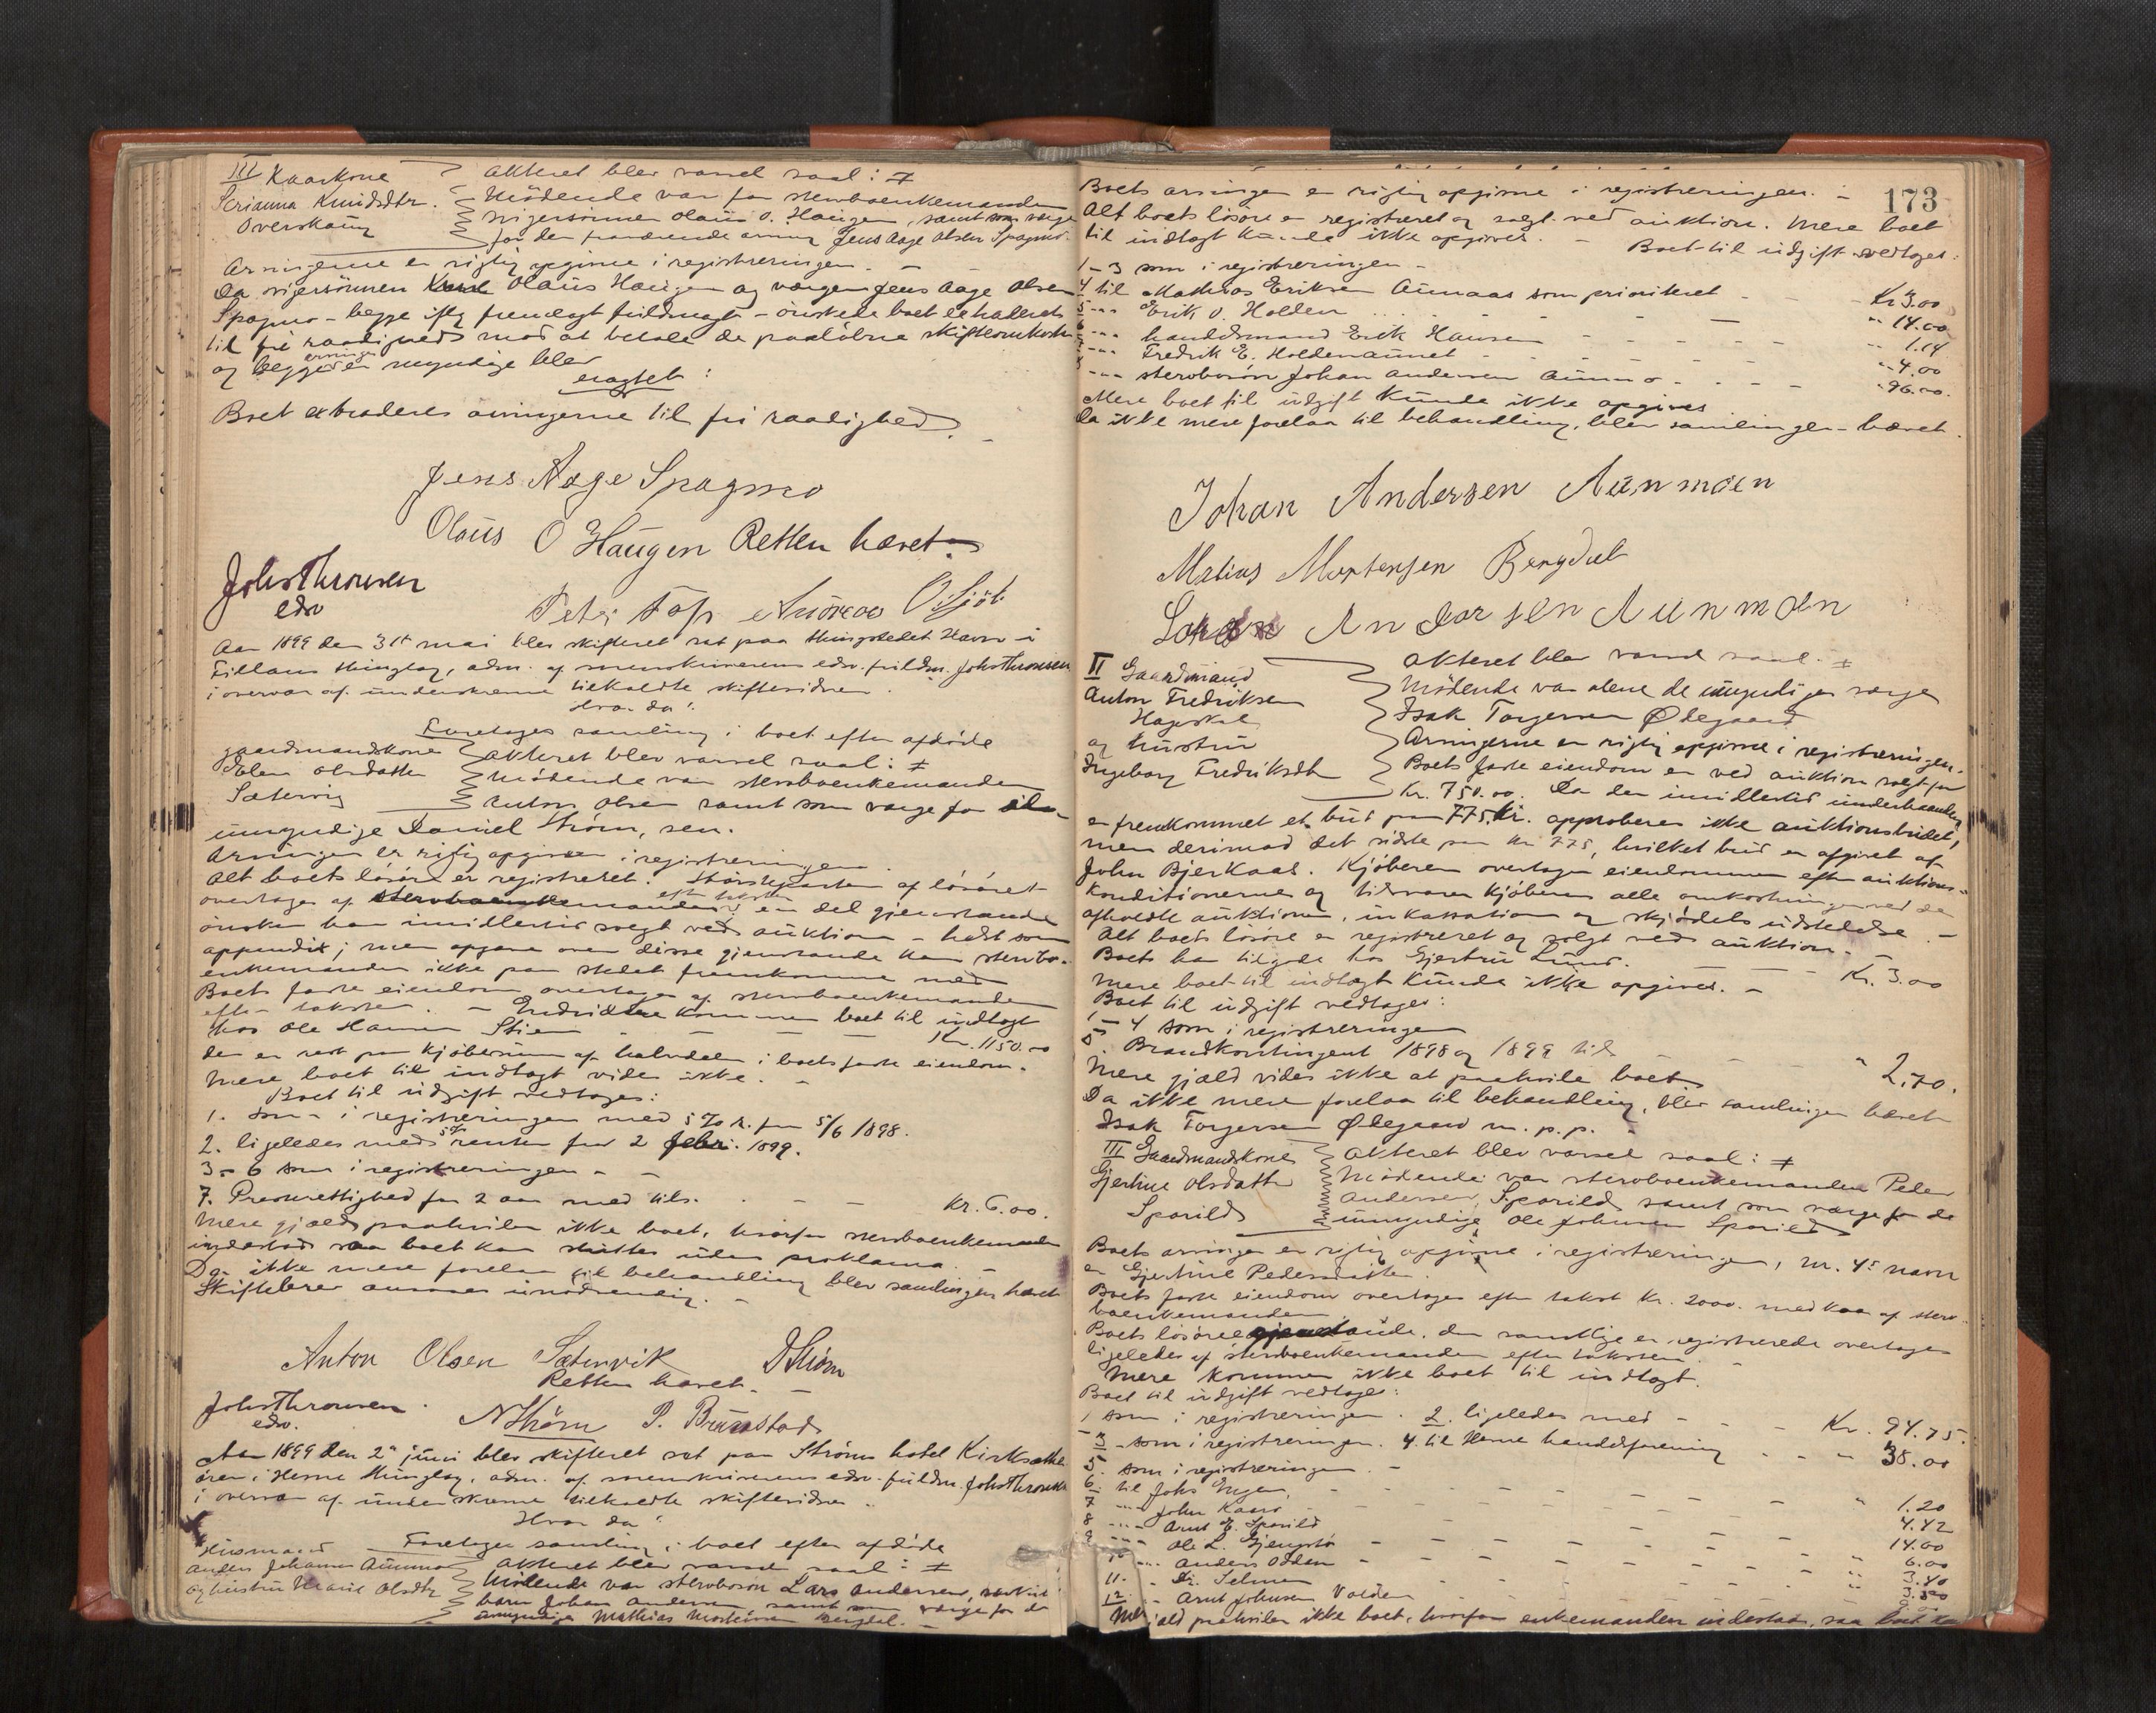 III Kaarkone
Serianna Knudsdtr.
Overskaug
Akteret blev varsel saal: #
Mödende var for stervboenkemanden
svigersönnen Olaus O. Haugen, samt som værge
for den fraværende arving Jens Aage Olsen Spagmo.
Arvingerne er rigtig opgivne i registreringen. –
Da svigersönnen Olaus Haugen og værgen Jens Aage Olsen
Spagmo – begge iflg fremlagt fuldmagt – önskede boet extraderet
til fri raadighed mod at betale de paalöbne skifteomkostn
og begge arvinger er myndige blev
eragtet:
Boet extraderes arvingerne til fri raadighed. –
Jens Aage Spagmo
Olaus O Haugen Retten hævet. –
Johs Thronsen
edsv
Peter Foss Andreas O. Sjöli
Aar 1899 den 31te mai blev skifteret sat paa thingstedet Havn i
Fillans thinglag, adm. af sorenskriverens edsv. fuldm. Johs Thronsen
i overvær af underskrevne tilkaldte skiftevidner.
Hvor da:
Foretoges samling i boet efter afdöde
gaardmandskone
Elen Olsdatter
Sætervig
Akteret blev varsel saal: #
Mödende var stervboenkemanden
Anton Olsen samt som værge for de
umyndige Daniel Ström, sen.
Arvingen er rigtig opgiven i registreringen
Alt boets lösöre er registreret. Störsteparten af lösöret
overtages af stervboenkemanden efter taksten en del gjenstande
önsker han imidlertid solgt ved auktion – helst som
appendix; men opgave over disse gjenstande kan stervbo-
enkemanden ikke paa stedet fremkomme med
Boets faste eiendom overtages af stervboenkemanden
efter taksten. – Endvidere kommer boet til indtægt
hos Ole Hansen Stien – – – Kr. 1150.00
der er rest paa kjöbesum af halvdelen i boets faste eiendom.
Mere boet til indtægt vides ikke. –
Boet til udgift vedtoges:
1. som i registreringen med 5 % r. fra 5/6 1898.
2. ligeledes med 5% renter fra 2 febr. 1899.
3–6 som i registreringen – –
7. Presterettighed for 2 aar med tils. – – Kr. 6.00.
Mere gjæld paahviler ikke boet, hvorfor stervboenkemanden
indestod saa boet kan sluttes uden proklama. –
Da ikke mere forelaa til behandling blev samlingen hævet
Skiftebrev ansees unödvendig. –
Anton Olsen Sætervik D Ström
Retten hævet. –
Johs Thronsen.
edsv.
N Ström P. Brunstad
Aar 1899 den 2n juni blev skifteret sat paa Ströms hotel Kirksæter
ören i Hemne thinglag, adm. af sorenskriverens edsv. fuldm. Johs Thronsen
i overvær af underskrevne tilkaldte skiftevidner.
Hvor da:
Foretoges samling i boet efter afdöde
Husmand
Anders Johansen Aunmo
og hustru Marit Olsdtr
Akteret blev varsel saal: #
Mödende var stervbosön Lars Andersen,
Johan Andersen samt som værge for de
umyndige Mathias Mortensen Bergdal. –
173
Boets arvinger er rigtig opgivne i registreringen. –
Alt boets lösöre er registreret og solgt ved auktion. Mere boet
til indtægt kunde ikke opgives. – Boet til udgift vedtoges:
1–3 som i registreringen –
4 til Mathias Eriksen Aunaas som prioriteret – Kr 3.00
5 --- Erik O. Holden – – – " 14.00
6 --- handelsmand Erik Hansen – – – " 1.14
--- Fredrik E. Holdenaunet – – – " 4.00
--- stervbosön Johan Andersen Aunmo – – – " 96.00.
Mere boet til udgift kunde ikke opgives
Da ikke mere forelaa til behandling, blev samlingen hævet.
Johan Andersen Aunmoen
Matias Mortensen Bergdal
Andersen Aunmoen
II Gaardmand
Anton Fredriksen
Hageskal
og hustru
Ingeborg Fredriksdtr
Akteret blev varsel saal. #
Mödende var alene de umyndiges værge
Isak Torgersen Ödegaard
Arvingerne er rigtig opgivne i registreringen.
Boets faste eiendom er ved auktion solgt for
Kr. 750.00. Da der imidlertid underhaanden
er fremkommet et bud paa 775 Kr. approberes ikke auktionsbudet,
men derimod det sidste paa Kr 775, hvilket bud er afgivet af
John Bjerkaas. Kjöberen overtager eiendommen efter auktions-
konditionerne og tilsvarer kjöberen alle omkostninger ved den
afholdte auktion, inkassation og skjödets udstedelse. –
Alt boets lösöre er registreret og solgt ved auktion.
Boets har tilgode hos Gjertru Lund. – – – Kr. 3.00
Mere boet til indtægt kunde ikke opgives. –
Boet til udgift vedtoges:
1–4 som i registreringen
5 Brandkontingent 1898 og 1899 tils – – " 2.70.
Mere gjæld vides ikke at paahvile boet
Da ikke mere forelaa til behandling, blev samlingen hævet
Isak Torgersen Ödegaard m. p. p. –
III Gaardmandskone
Gjertine Olsdatter
Sporild
Akteret blev varsel saal: #
Mödende var stervboenkemanden Peder
Andersen Sporild samt som værge for de
umyndige Ole Johnsen Sporild
Boets arvinger er rigtig opgivne i registreringen, nr. 4s navn
er Gjertine Pedersdatter.
Boets faste eiendom overtages efter takst Kr. 2000. med kaar af sterv-
boenkemanden
Boets lösöregjenstande, der samtlige er registrerede overtages
ligeledes af stervboenkemanden efter taksten. –
Mere kommer ikke boet til indtægt.
Boet til udgift vedtoges:
1 som i registreringen. 2. ligeledes med – – – Kr. 94.75.
3 – som i registreringen. 4. til Hemne handelsforening – – " 38.00
5. som i registreringen. –
6. til Johs Engen, – – – " 1.20
7 ---- John Kaarø – – – 4.42
8 ---- Arnt E. Sporild – – – 14.00
9 --- Ole L. Gjengstö – – – " 6.00
10 --- Anders Odden – – – " 3.40
11. - Dr. Selmer – – – " 3.50
12 - Arnt Johnsen Volden
gjæld paahviler ikke boet, hvorfor enkemanden indestaar, saa boet kan